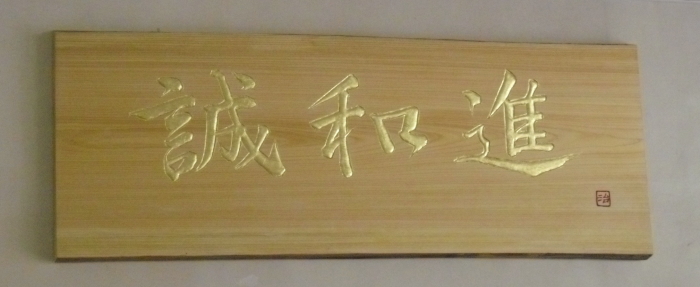 誠和進